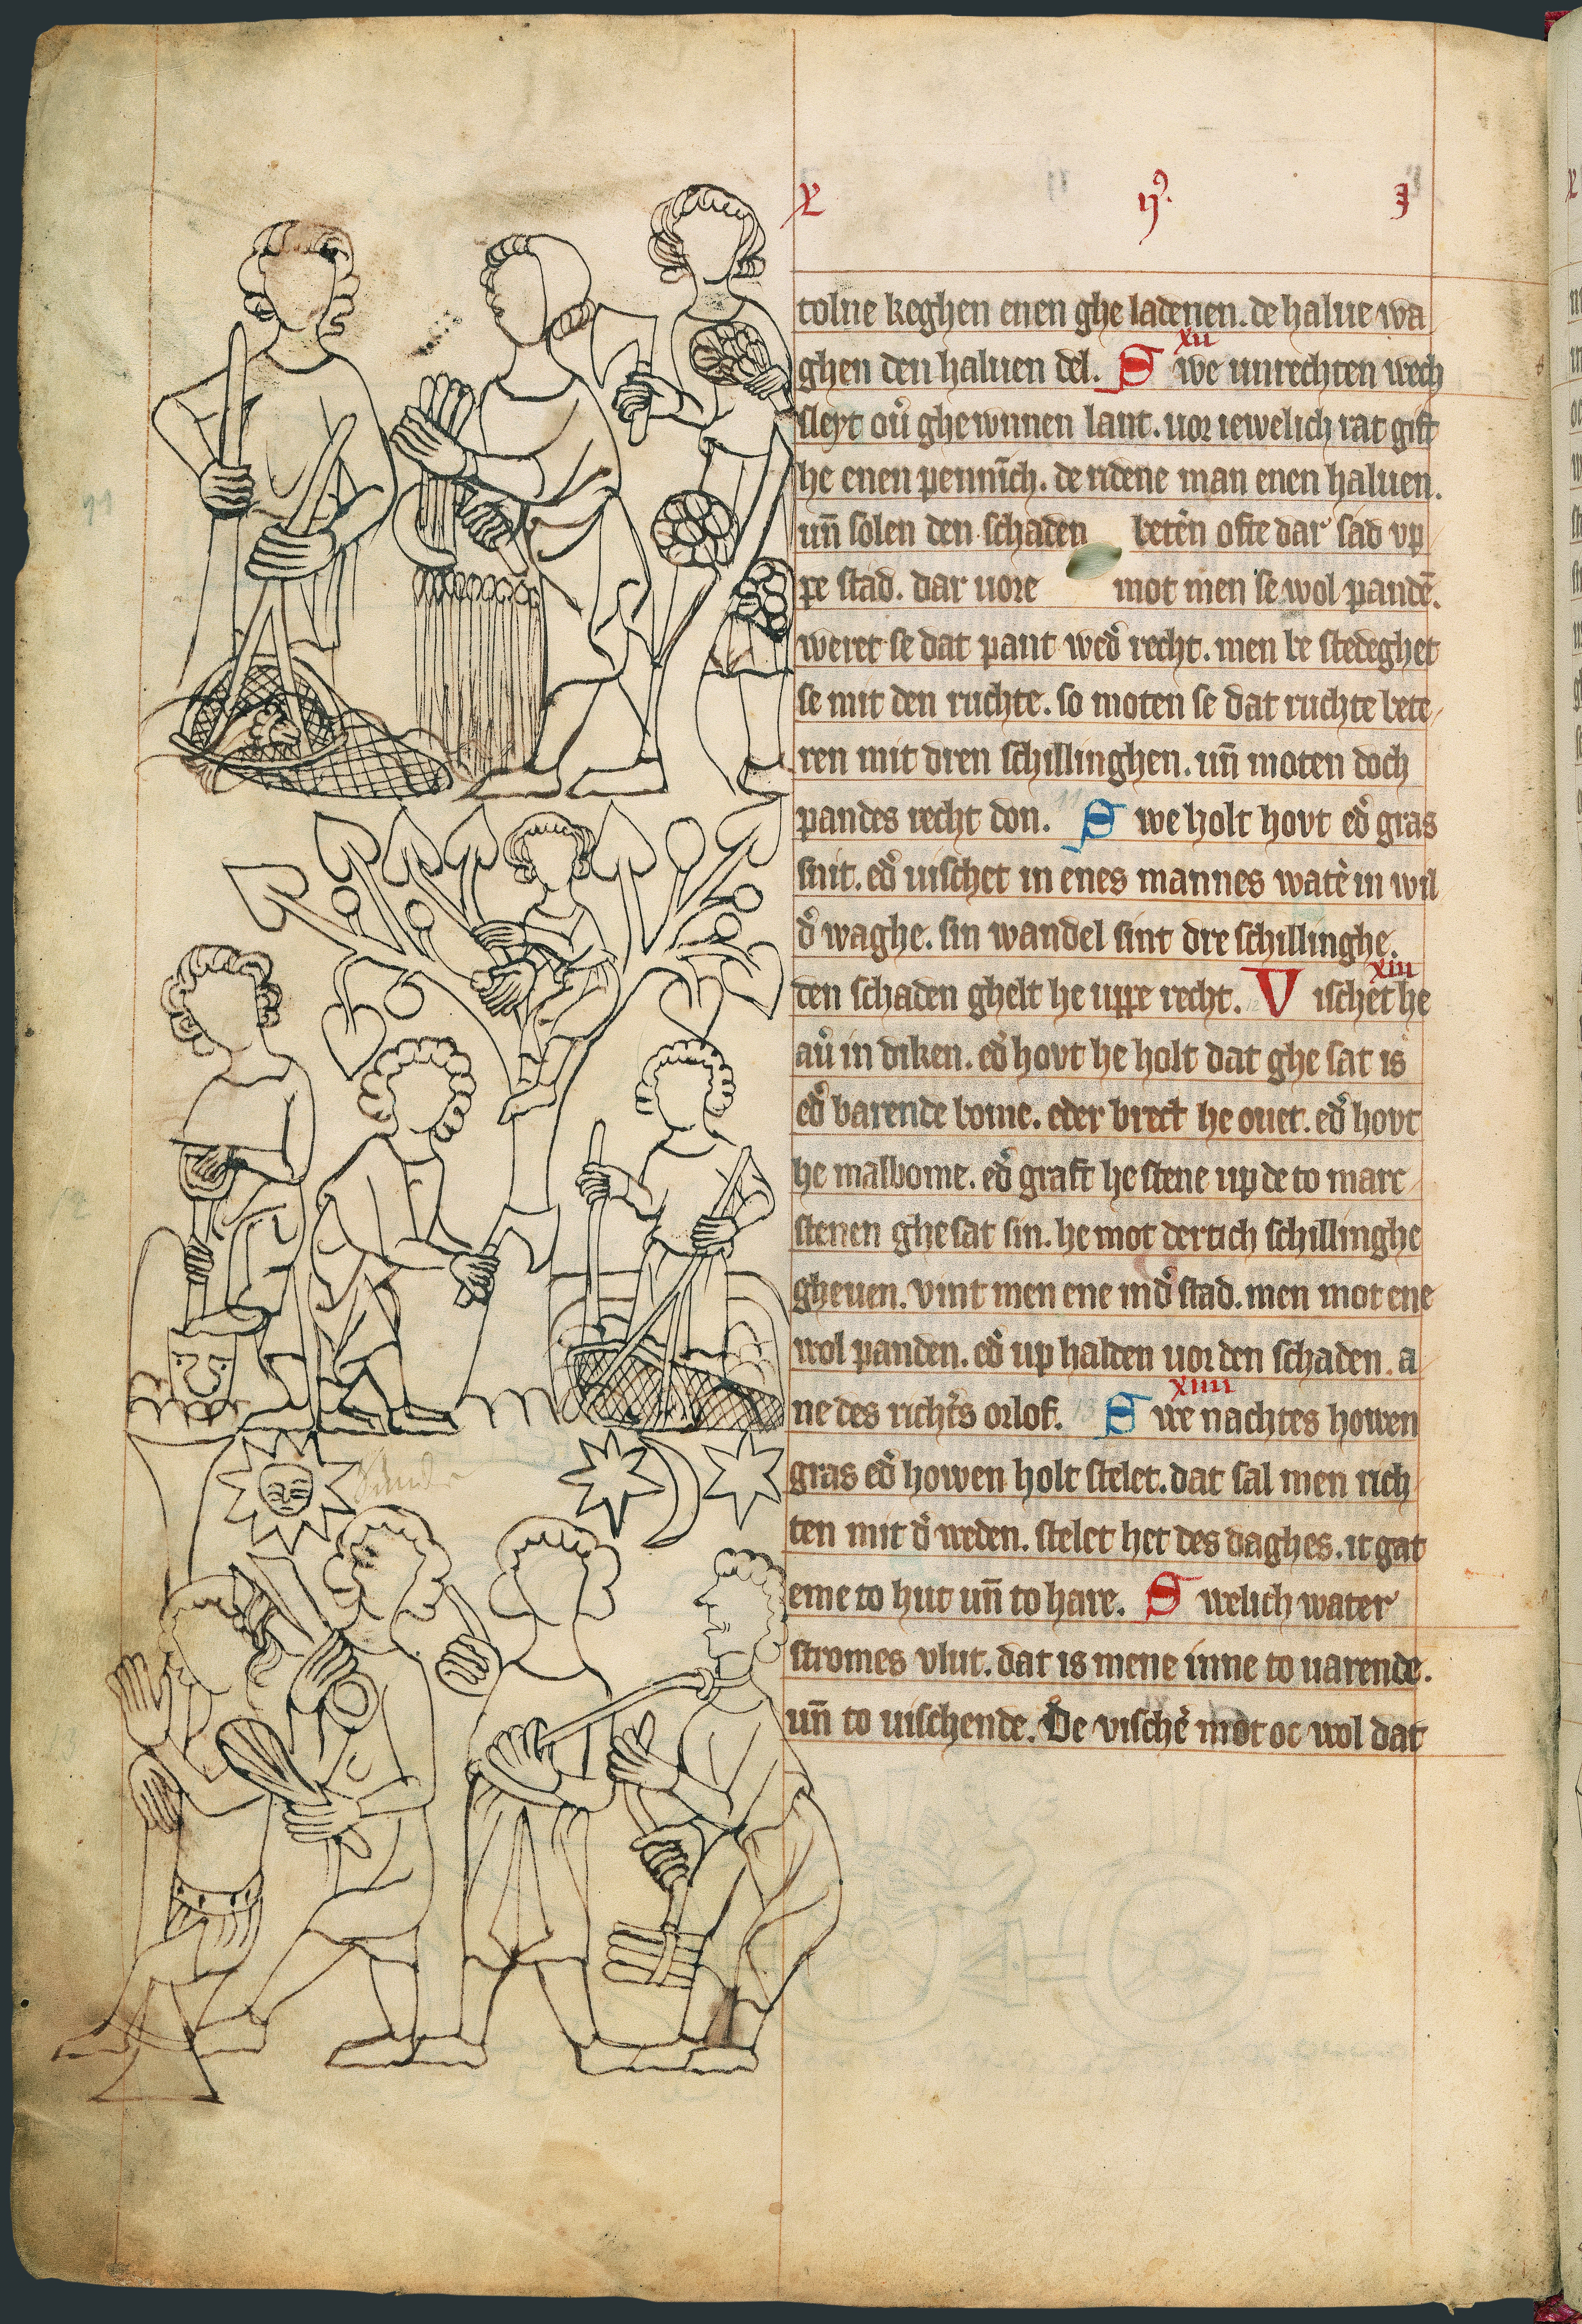 X ij⁹. I
tolne keghen enen ghe ladenen. de halue wa
xii
ghen den haluen del. S we unrechten wech
sleyt ou̕ ghewnnen lant. uor iewelich rat gift
he enen penni̅ch. de ridene man enen haluen.
un̅ solen den schaden bete̕n ofte dar sad vp
pe stad. dar uore mot men se wol pande̅.
weret se dat pant wed̕ recht. men be stedeghet
se mit den ruchte. so moten se dat ruchte bete
ren mit dren schillinghen. un̅ moten doch
pandes recht don. S we holt hovt ed̕ gras
snit. ed̕ uischet in enes mannes wate̕ in wil
d̕ waghe. sin wandel sint dre schillinghe.
xiii
den schaden ghelt he uppe recht. V ischet he
au̕ in diken. ed̕ hovt he holt dat ghe sat is
ed̕ barende bome. eder brect he ouet. ed̕ hovt
he malbome. ed̕ graft he stene up de to marc
stenen ghesat sin. he mot dertich schillinghe
gheuen. vint men ene in d̕ stad. men mot ene
wol panden. ed̕ up halden uor den schaden. a
xiiii
ne des richt̕s orlof. S we nachtes howen
gras ed̕ howen holt stelet. dat sal men rich
ten mit d̕ weden. stelet het des daghes. it gat
eme to hut un̅ to hare. S welich water
stromes vlut. dat is mene inne to uarende.
un̅ to uischende. De vische̕ mot oc wol dat